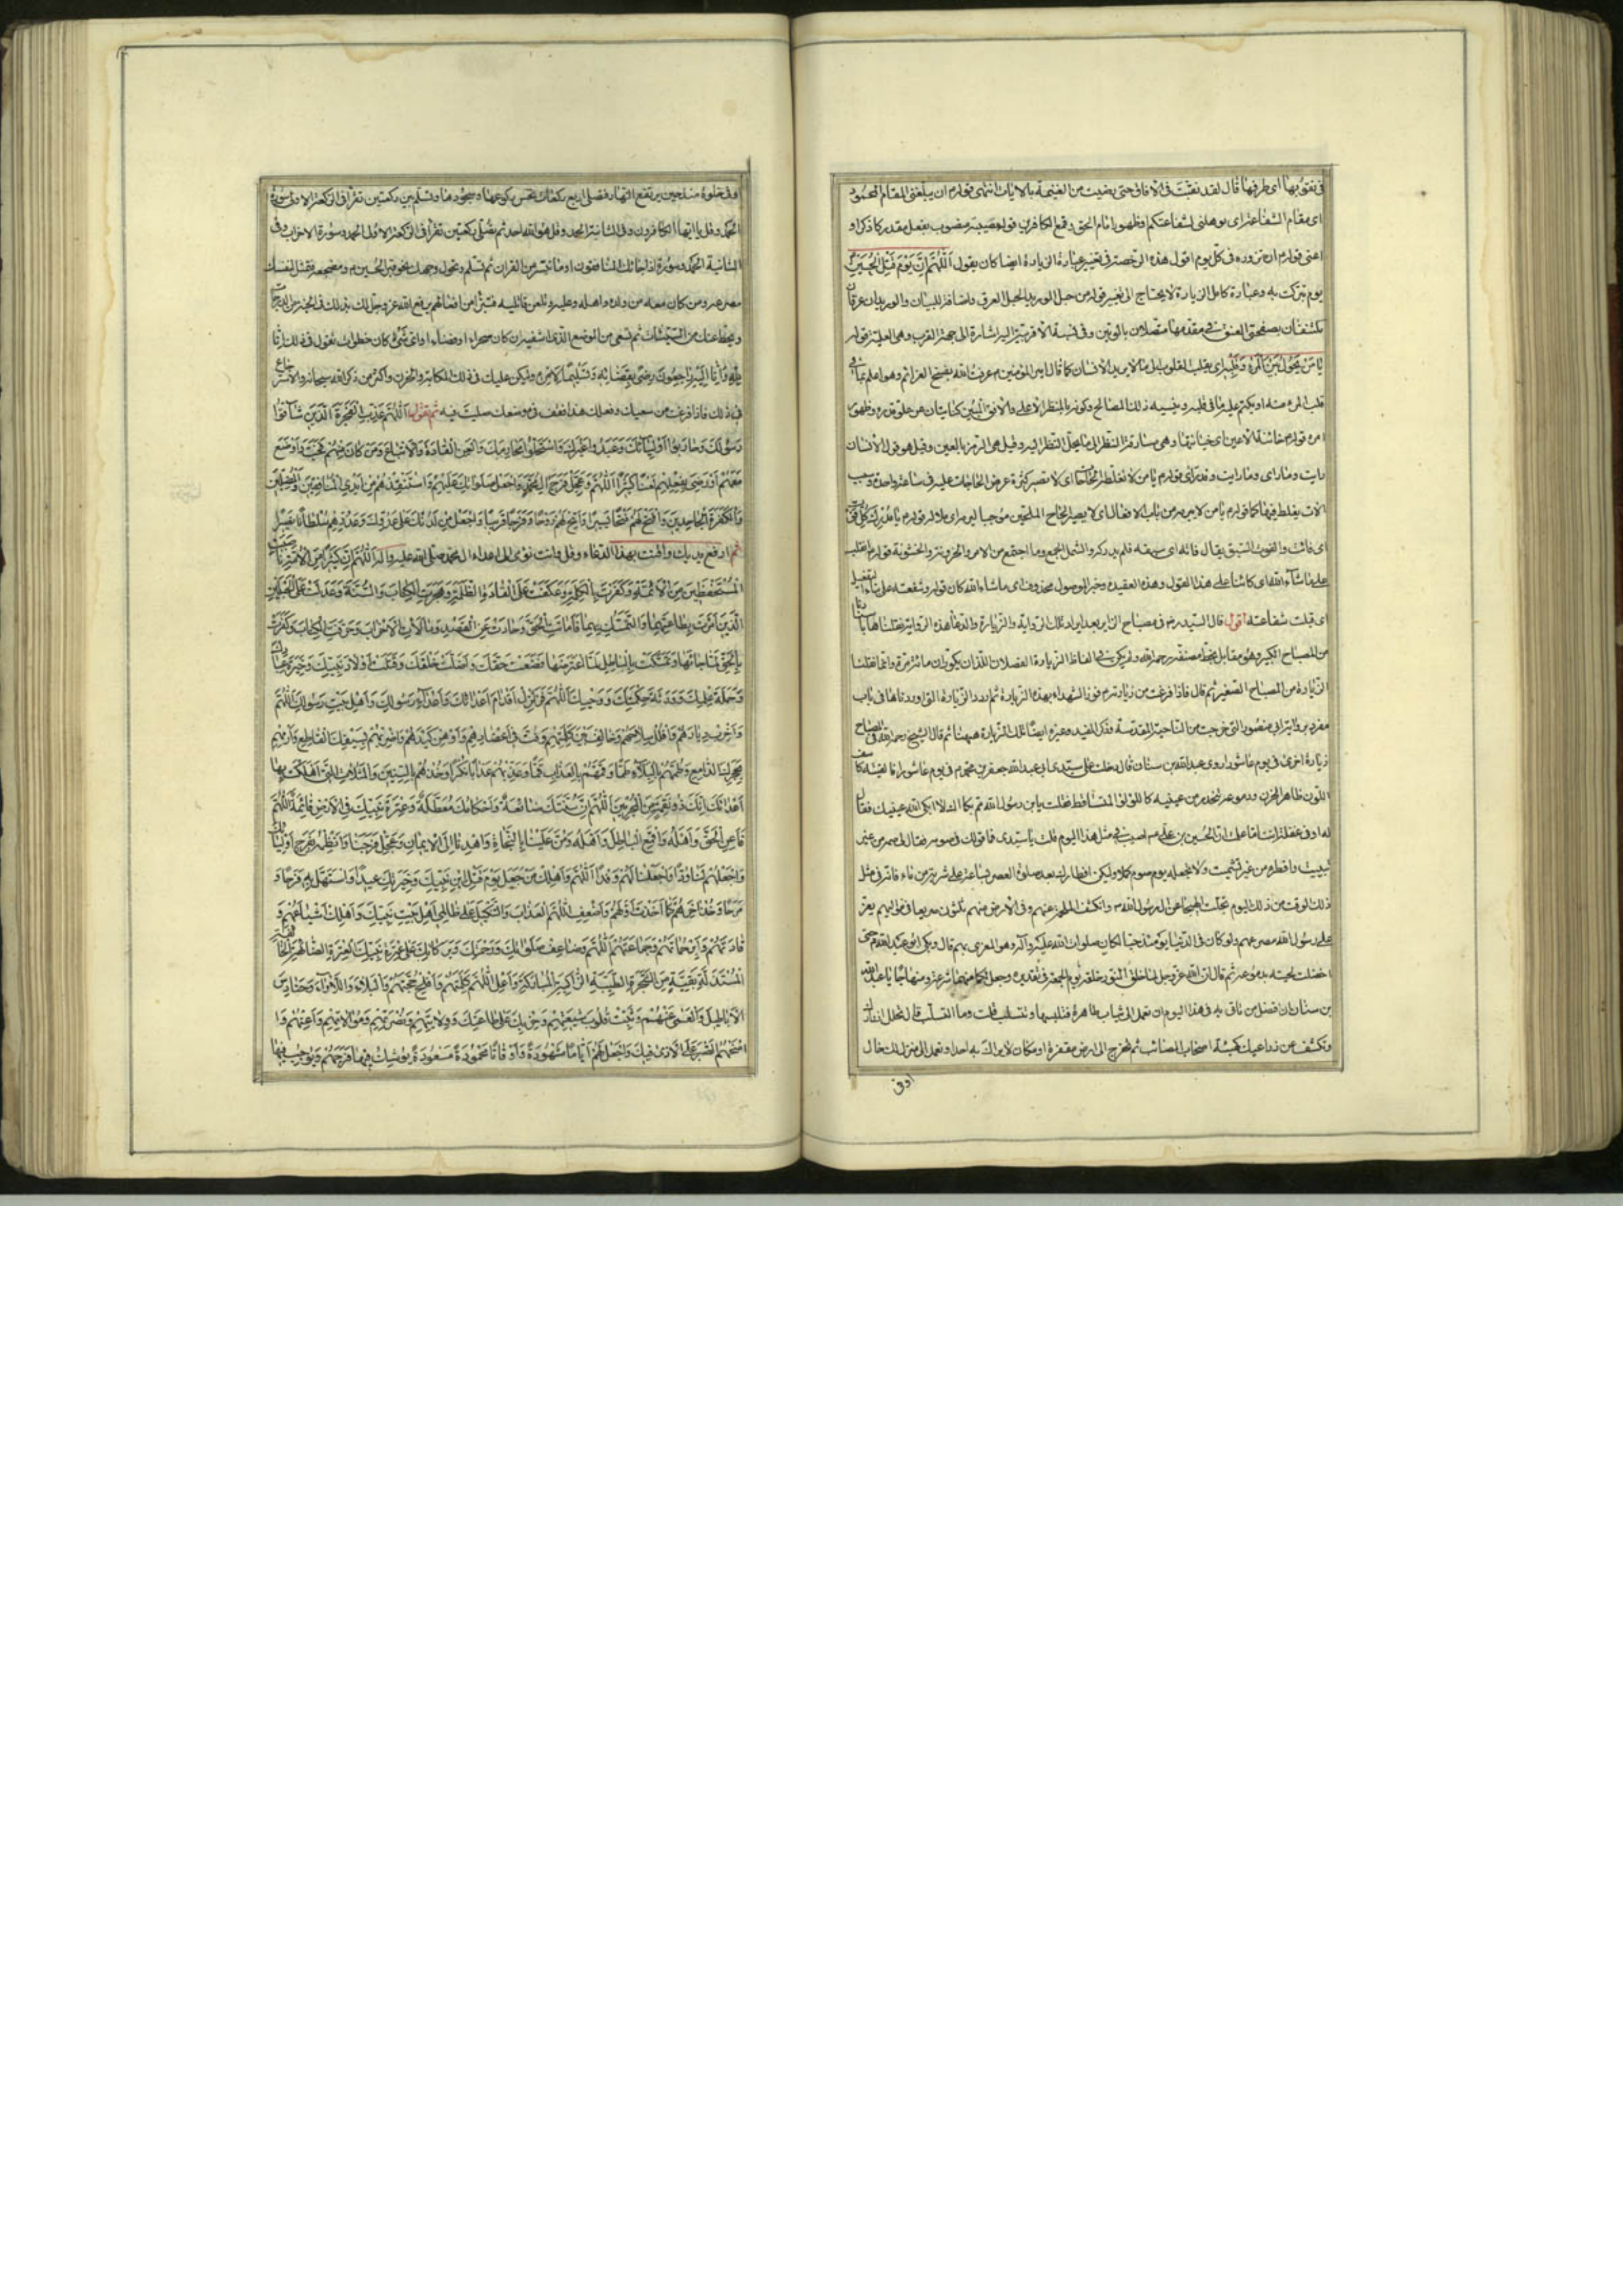 في نقوبها اى طرفها قال لقد نقبت في الافاق حتى رضيت من الغنيمة بالاياب انتهى قوله م ان يبلغنى المقام المحمود
اى مقام الشفاعة اى يؤهلنى لشفاعتكم وظهور امام الحق وقمع الكافرين قوله مصيبة منصوب بفعل مقدر كاذكر او
اعنى قوله م ان تزوره في كل يوم اقول هذه الرخصة في تغيير عبارة الزيارة ايضا كان يقول اللهم ان يوم قتل الحسين
يوم تبركت به وعبارة كامل الزيارة لا يحتاج الى تغيير قوله من حبل الوريد الحبل العرق واضافته للبيان والوريدان عرقان
مكتنفان بصفحتي العنق في مقدمها متصلان بالوتين وفي نسبة الاقربية اليه اشارة الى جهة القرب وهى العلية قوله
يا من يحول بين المرء وقلبه اى يقلب القلوب الى ما لا يريد الانسان كما قال امير المؤمنين م عرفت الله بفسخ العزائم وهو اعلم بما في
قلب المرء منه او يكتم عليه ما في قلبه وينسيه ذلك للمصالح وكونه بالمنظر الاعلى والافق المبين كنايتان عن علو قدره وظهور
امره قوله م خائنة الاعين اى خيانتها وهى مسارقة النظر الى ما لا يحل النظر اليه وقيل هى الرمز بالعين وقيل هو قول الانسان
رايت وما راى وما رايت وقد راى قوله م يا من لا تغلطه الحاجات اى لا تصير كثرة عرض الحاجات عليه في ساعة واحدة
اى فائت والفوت السبق يقال فاته اى سبقه فلم يدركه والشمل الجمع وما اجتمع من الامر
على ما شاء الله اى كائنا على هذا القول وهذه العقيدة وخبر الموصول محذوف اى ما شاء الله كان قوله وشفعته على بناء التفعيل
اى قبلت شفاعته اقول قال السيد ره في مصباح الزائر بعد ايراد تلك الرواية والزيارة والدعاء هذه الرواية نقلناها باسنادنا
من المصباح الكبير وهو مقابل بخط مصنفه رحمه الله ولم يكن في الفاظ الزيارة الفصلان اللذان يكرران مائة مرة وانما نقلنا
الزيادة من المصباح الصغير ثم قال فاذا فرغت من زيارته م فزر الشهداء بهذه الزيارة ثم اورد الزيارة التى اوردناها في باب
مفرد برواية ابى منصور التى خرجت من الناحية المقدسة وذكر المفيد وغيره ايضا تلك الزيارة ههنا ثم قال الشيخ رحمه الله في المصباح
زيارة اخرى في يوم عاشورا روى عبد الله بن سنان قال دخلت على سيدى ابى عبد الله جعفر بن محمد م في يوم عاشورا فالفيته كاسف
اللون ظاهر الحزن ودموعه تنحدر من عينيه كاللؤلؤ المتساقط فقلت يا بن رسول الله مم بكاؤك لا ابكى الله عينيك فقال
له او في غفلة انت اما علمت ان الحسين بن على م اصيب في مثل هذا اليوم قلت يا سيدى فما قولك في صومه فقال لى صمه من غير
تبييت وافطره من غير تشميت ولا تجعله يوم صوم كملا وليكن افطارك بعد صلوة العصر بساعة على شربة من ماء فانه في مثل
ذلك الوقت من ذلك اليوم تجلت الهيجاء عن ال رسول الله ص وانكشفت الملحمة عنهم وفي الارض منهم ثلثون صريعا في مواليهم يعز
على رسول الله مصرعهم ولو كان في الدنيا يومئذ حيا لكان صلوات الله عليه وآله هو المعزى بهم قال وبكى ابو عبد الله م حتى
اخضلت لحيته بدموعه ثم قال ان الله عز وجل لما خلق النور خلقه يوم الجمعة في تقديره وجعل لكل منهما شرعة ومنهاجا يا عبد الله
بن سنان ان افضل من تاتى به في هذا اليوم ان تعمد الى ثياب طاهرة فتلبسها وتتسلب قلت وما التسلب قال تحلل ازرارك
وتكشف عن ذراعيك كهيئة اصحاب المصائب ثم تخرج الى ارض مقفرة او مكان لا يراك به احد او تعمد الى منزل لك خال
اوفى
اوفى خلوة منذ حين يرتفع النهار فتصلى اربع ركعات تحسن ركوعها وسجودها وتسلم بين ركعتين تقرأ في الركعة الاولى سورة
الحمد وقل يا ايها الكافرون وفي الثانية الحمد وقل هو الله احد ثم تصلى ركعتين تقرأ في الركعة الاولى الحمد وسورة الاحزاب وفي
الثانية الحمد وسورة اذا جائك المنافقون او ما تيسر من القران ثم تسلم وتحول وجهك نحو قبر الحسين م ومضجعه فتمثل لنفسك
مصرعه ومن كان معه من ولده واهله وعليه وتلعن قاتليه فتبرأ من افعالهم يرفع الله عز وجل لك بذلك في الجنة من الدرجات
ويحط عنك من السيئات ثم تسعى من الموضع الذى انت فيه ان كان صحراء او فضاء او اى شئ كان خطوات تقول في ذلك انا
لله وانا اليه راجعون رضى بقضائه وتسليما لامره وليكن عليك في ذلك الكابة والحزن واكثر من ذكر الله سبحانه والاسترجاع
في ذلك فاذا فرغت من سعيك وفعلك هذا فقف في موضعك صليت فيه ثم تقول اللهم عذب الفجرة الذين شاقوا
رسولك وحاربوا اولياءك وعبدوا غيرك واستحلوا محارمك والعن القادة والاتباع ومن كان منهم فخب واوضع
معهم او رضى بفعلهم لعنا كثيرا اللهم وعجل فرج ال محمد واجعل صلواتك عليهم واستنقذهم من ايدى المنافقين المضلين
والكفرة الجاحدين وافتح لهم فتحا يسيرا واتح لهم روحا وفرجا قريبا واجعل من لدنك على عدوك وعدوهم سلطانا نصيرا
ثم ارفع يديك واقنت بهذا الدعاء وقل وانت تومى الى اعداء ال محمد صلى الله عليه وآله اللهم ان كثيرا من الامة ناصبت
المستحفظين من الائمة وكفرت بالكلمة وعكفت على القادة الظلمة وهجرت الكتاب والسنة وعدلت عن الحبلين
الذين امرت بطاعتهما والتمسك بهما فاماتت الحق وحادت عن القصد ومالات الاحزاب وحرفت الكتاب وكفرت
بالحق لما جاءها وتمسكت بالباطل لما اعترضها فضيعت حقك واضلت خلقك وقتلت اولاد نبيك وخيرة عبادك
وحملة علمك وورثة حكمتك ووحيك اللهم فزلزل اقدام اعدائك واعداء رسولك واهل بيت رسولك اللهم
واخرب ديارهم وافلل سلاحهم وخالف بين كلمتهم وفت في اعضادهم واوهن كيدهم واضربهم بسيفك القاطع وارمهم
بحجرك الدامغ وطمهم بالبلاء طما وقمهم بالعذاب قما وعذبهم عذابا نكرا وخذهم بالسنين والمثلات التى اهلكت بها
اعدائك انك ذو نقمة من المجرمين اللهم ان سنتك ضائعة واحكامك معطلة وعترة نبيك في الارض هائمة اللهم
فاعن الحق واهله واقمع الباطل واهله ومن علينا بالنجاة واهدنا الى الايمان وعجل فرجنا وانظمه بفرج اوليائك
واجعلهم لنا ودا واجعلنا لهم وفدا اللهم واهلك من جعل يوم قتل ابن نبيك وخيرتك عيدا واستهل به فرحا و
مرحا وخذ اخرهم كما اخذت اولهم واضعف اللهم العذاب والتنكيل على ظالمى اهل بيت نبيك واهلك اشياعهم و
قادتهم وابر حماتهم وجماعتهم اللهم وضاعف صلواتك ورحمتك وبركاتك على عترة نبيك العترة الضائعة الخائفة
المستذلة بقية من الشجرة الطيبة الزاكية المباركة واعل اللهم كلمتهم وافلج حجتهم واكشف البلاء واللاواء وحنادس
الاباطيل والعمى عنهم وثبت قلوب شيعتهم وحزبك على طاعتك وولايتهم ونصرتهم وموالاتهم واعنهم وا
امنحهم الصبر على الاذى فيك واجعل لهم اياما مشهودة واوقاتا محمودة مسعودة يوشك فيها فرجهم وتوجب فيها